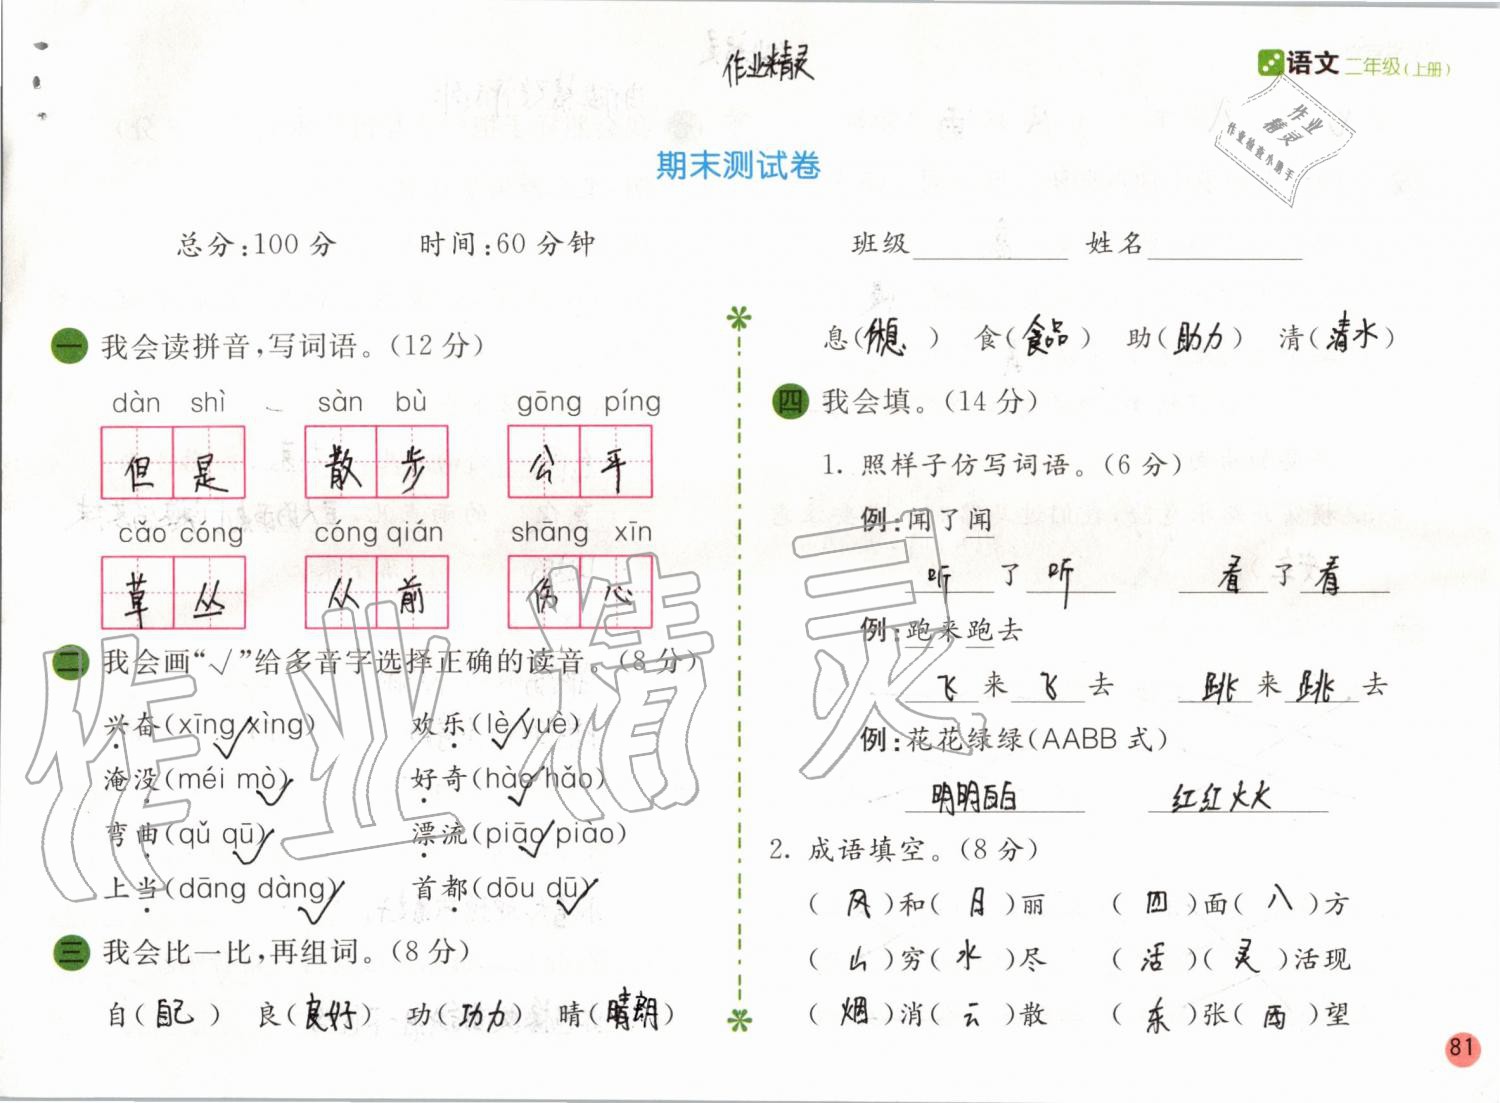 作业精灵
语文二年级(上册)
作业
精灵
作业检查小助手
期末测试卷
总分:100分 时间:60分钟 班级 姓名
一 我会读拼音,写词语。(12分)
dàn shì sàn bù gōng píng
但是 散步 公平
cǎo cóng cóng qián shāng xīn
草丛 从前 伤心
二 我会画“√”给多音字选择正确的读音。(8分)
兴奋(xīng√ xìng) 欢乐(lè√ yuè)
淹没(méi mò√) 好奇(hào√ hǎo)
弯曲(qǔ qū√) 漂流(piāo√ piào)
上当(dāng dàng√) 首都(dōu dū√)
三 我会比一比,再组词。(8分)
自(自己) 良(良好) 功(功力) 晴(晴朗)
息(休息) 食(食品) 助(助力) 清(清水)
四 我会填。(14分)
1. 照样子仿写词语。(6分)
例:闻了闻
听了听 看了看
例:跑来跑去
飞来飞去 跳来跳去
例:花花绿绿(AABB式)
明明白白 红红火火
2. 成语填空。(8分)
(风)和(日)丽 (四)面(八)方
(山)穷(水)尽 (活)(灵)活现
(烟)消(云)散 (东)张(西)望
81
作业精灵